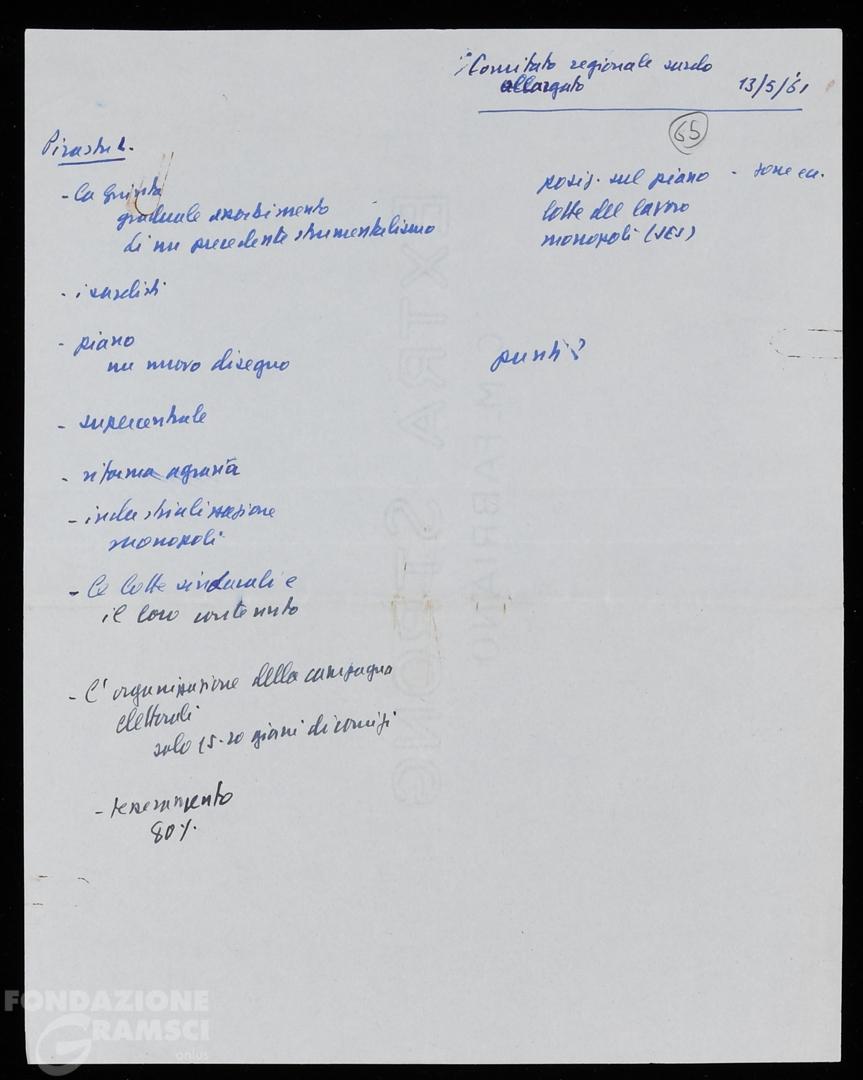 Comitato regionale sardo
allargato 13/5/61
65
Pirastu L.
- la Giunta
graduale
di un precedente strumentalismo
- i sardisti
- piano
un nuovo disegno
- supercentrale
- riforma agraria
- industrializzazione
monopoli
- le lotte sindacali e
il loro contenuto
- l'organizzazione della campagna
elettorali
solo 15-20 giorni di comizi
- tesseramento
80%
posiz. sul piano - zone
lotte del lavoro
monopoli (SES)
punti?
EXTRA STRONG
C.M. FABRIANO
FONDAZIONE
GRAMSCI
onlus